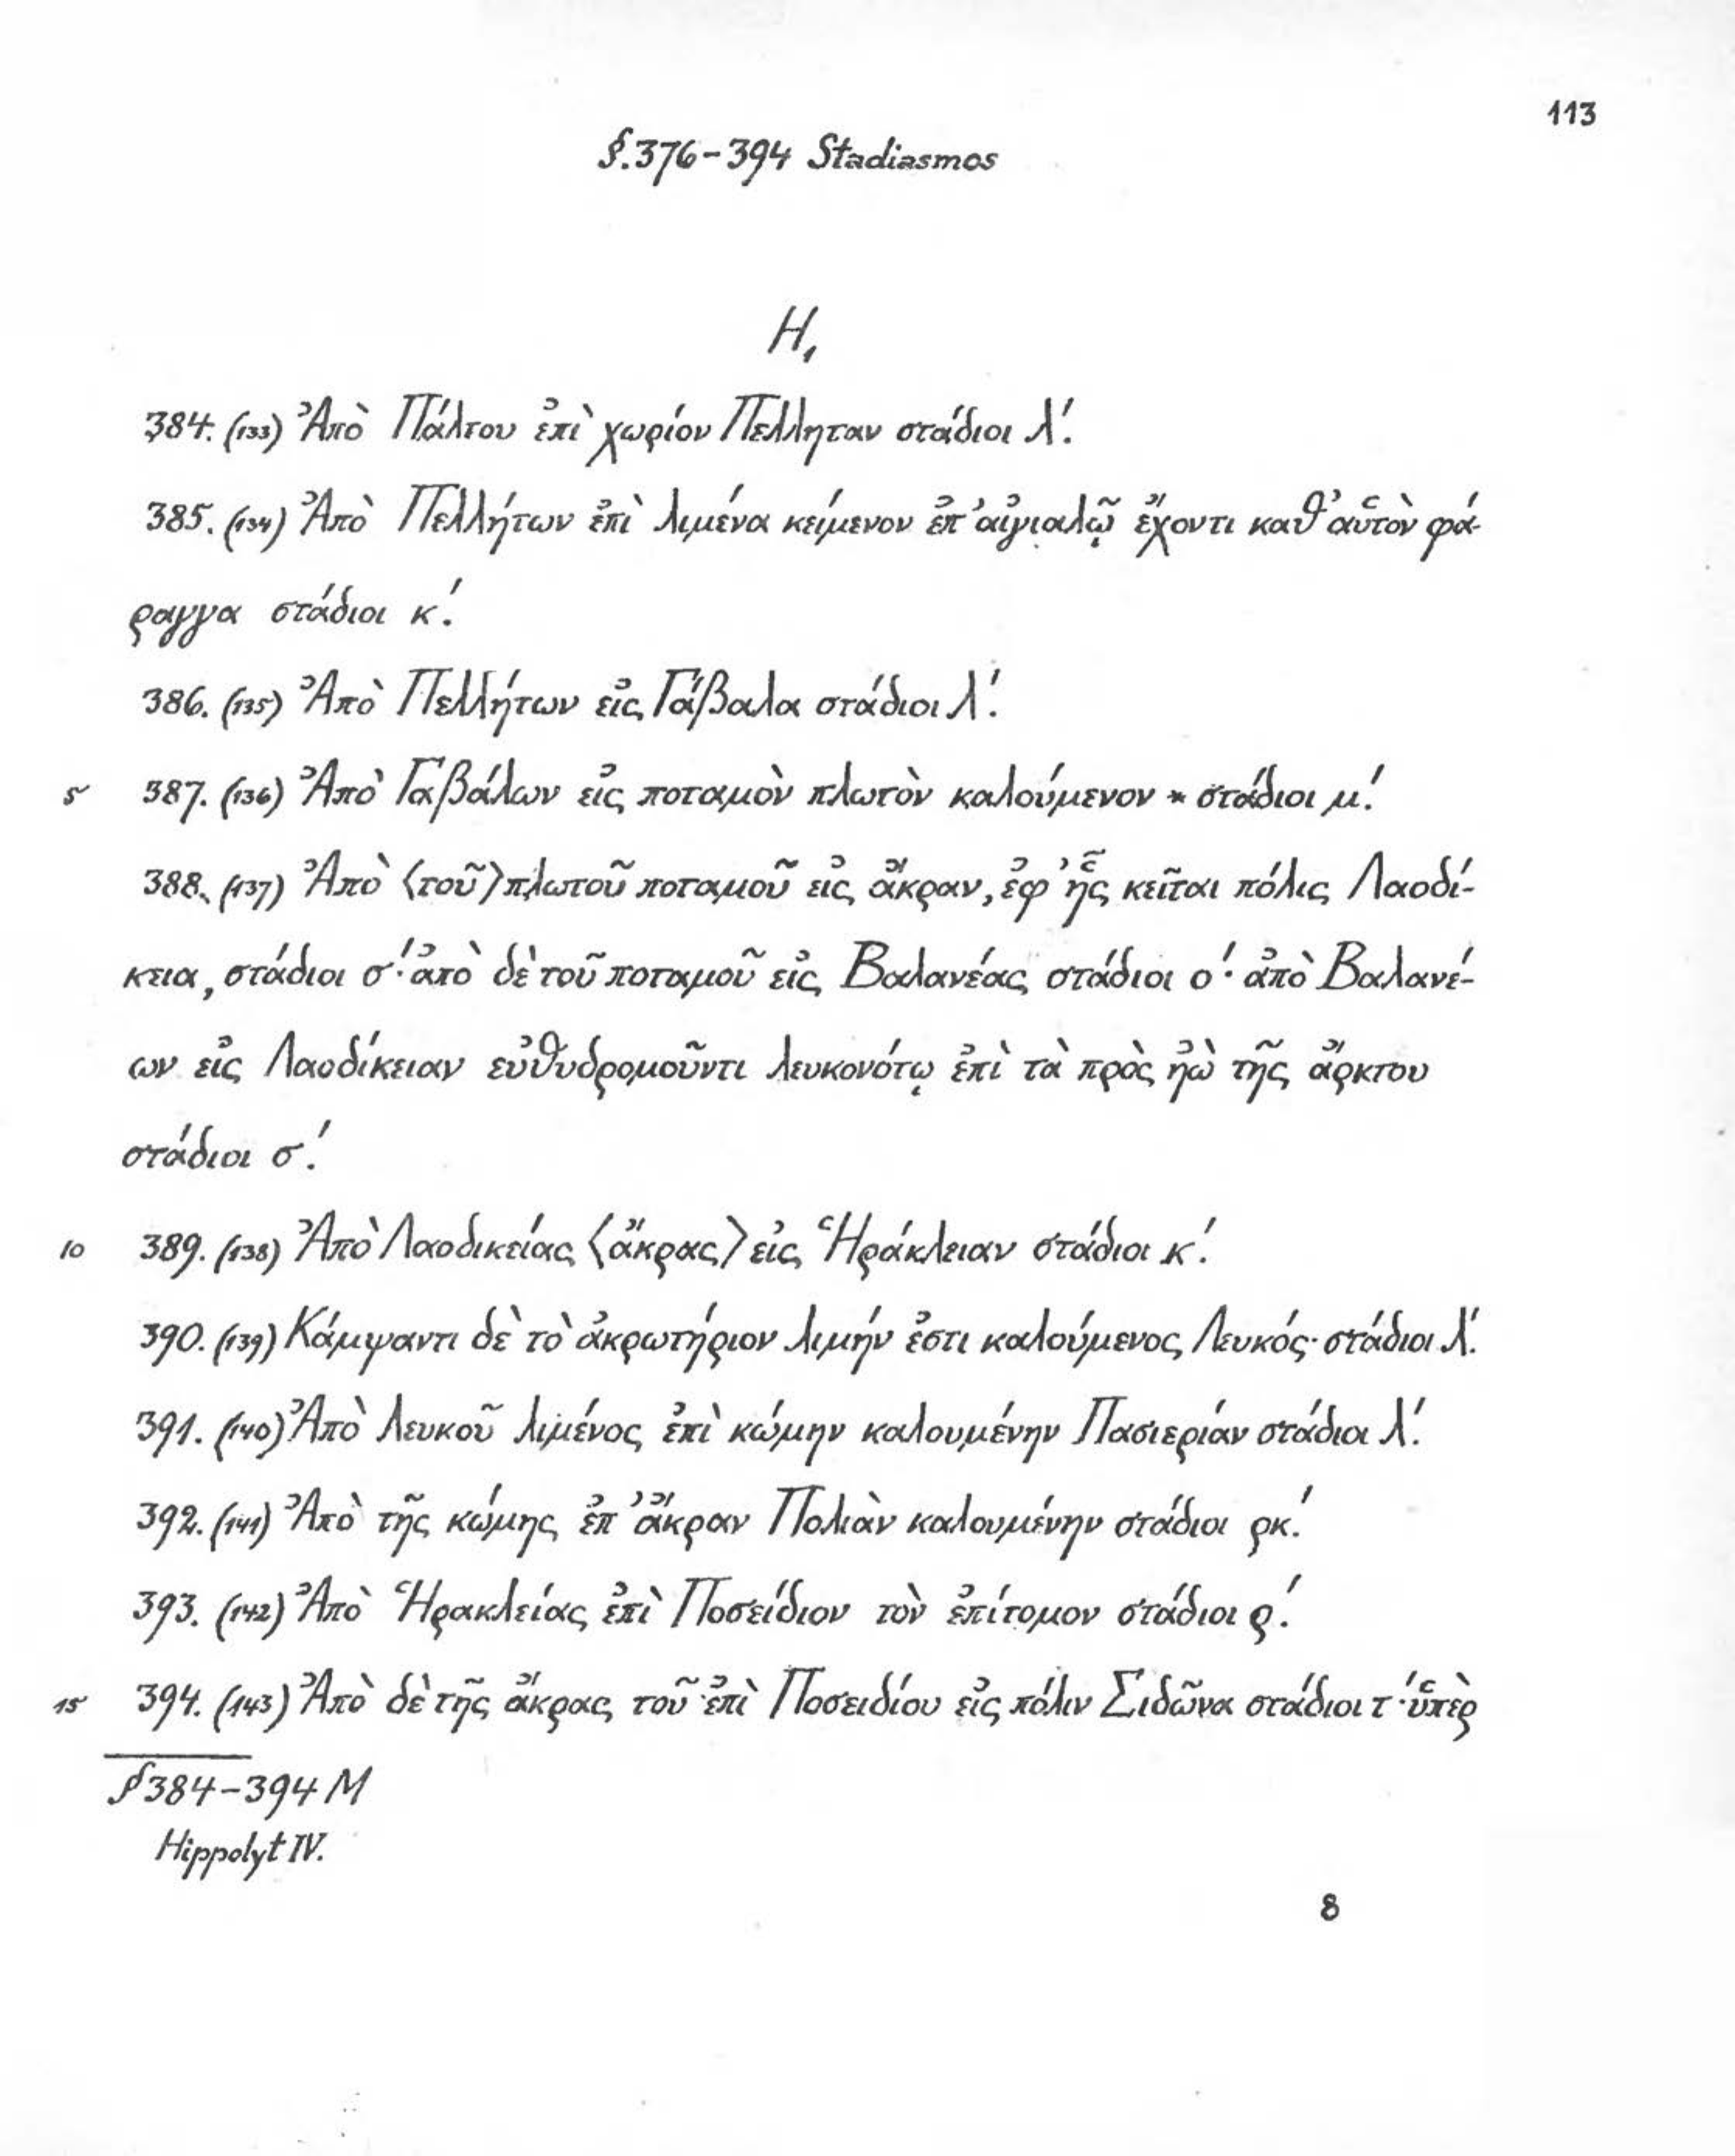 113
§.376-394 Stadiasmos
H₁
384. (133) Ἀπὸ Πάλτου ἐπὶ χωρίον Πελληταν στάδιοι λ΄.
385. (134) Ἀπὸ Πελλήτων ἐπὶ λιμένα κείμενον ἐπ᾽ αἰγιαλῷ ἔχοντι καθ᾽ αὑτὸν φά-
ραγγα στάδιοι κ΄.
386. (135) Ἀπὸ Πελλήτων εἰς Γάβαλα στάδιοι λ΄.
5 387. (136) Ἀπὸ Γαβάλων εἰς ποταμὸν πλωτὸν καλούμενον * στάδιοι μ΄.
388. (137) Ἀπὸ ⟨τοῦ⟩ πλωτοῦ ποταμοῦ εἰς ἄκραν, ἐφ᾽ ἧς κεῖται πόλις Λαοδί-
κεια, στάδιοι σ΄· ἀπὸ δὲ τοῦ ποταμοῦ εἰς Βαλανέας στάδιοι ο΄· ἀπὸ Βαλανέ-
ων εἰς Λαοδίκειαν εὐθυδρομοῦντι λευκονότῳ ἐπὶ τὰ πρὸς ἠὼ τῆς ἄρκτου
στάδιοι σ΄.
10 389. (138) Ἀπὸ Λαοδικείας ⟨ἄκρας⟩ εἰς Ἡράκλειαν στάδιοι κ΄.
390. (139) Κάμψαντι δὲ τὸ ἀκρωτήριον λιμήν ἐστι καλούμενος Λευκός· στάδιοι λ΄.
391. (140) Ἀπὸ Λευκοῦ λιμένος ἐπὶ κώμην καλουμένην Πασιεριάν στάδιοι λ΄.
392. (141) Ἀπὸ τῆς κώμης ἐπ᾽ ἄκραν Πολιὰν καλουμένην στάδιοι ρκ΄.
393. (142) Ἀπὸ Ἡρακλείας ἐπὶ Ποσείδιον τὸν ἐπίτομον στάδιοι ρ΄.
15 394. (143) Ἀπὸ δὲ τῆς ἄκρας τοῦ ἐπὶ Ποσειδίου εἰς πόλιν Σιδῶνα στάδιοι τ΄· ὑπὲρ
§ 384-394 M
Hippolyt IV.
8